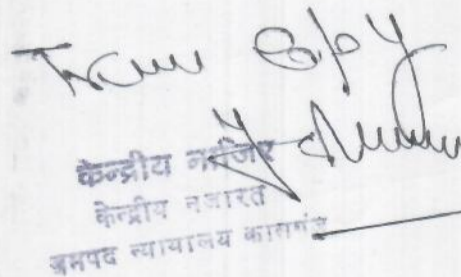 True Copy
केन्द्रीय नाजिर
केन्द्रीय नजारत
जनपद न्यायालय कासगंज